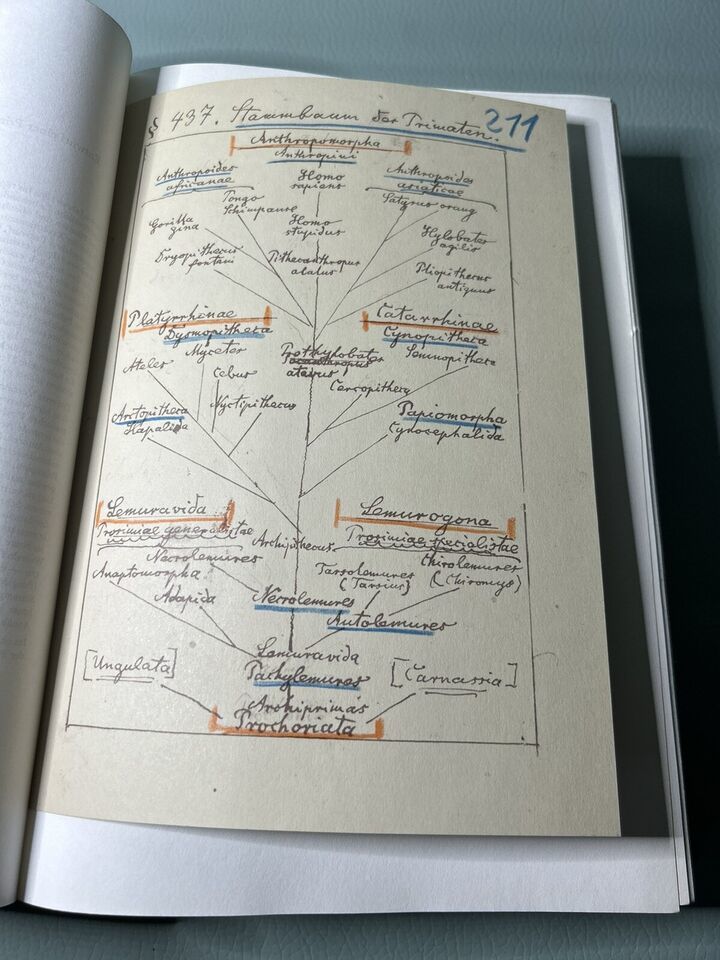 § 437. Stammbaum der Primaten.
211
Anthropomorpha
Anthropini
Anthropoides
africanae
Homo
sapiens
Anthropoides
asiaticae
Tongo
Schimpanse
Satyrus orang
Gorilla
gina
Homo
stupidus
Hylobates
agilis
Dryopithecus
fontani
Pithecanthropus
alalus
Pliopithecus
antiquus
Platyrrhinae
Catarrhinae
Dysmopitheca
Cynopitheca
Mycetes
Prothylobates
atavus
Semnopitheca
Ateles
Cebus
Cercopitheca
Nyctipithecus
Arctopitheca
Hapalida
Papiomorpha
Cynocephalida
Lemuravida
Lemurogona
Prosimiae generalistae
Prosimiae specialistae
Archipithecus
Necrolemures
Chirolemures
(Chiromys)
Anaptomorpha
Tarsolemures
(Tarsius)
Adapida
Necrolemures
Autolemures
Lemuravida
[Ungulata]
Pachylemures
[Carnassia]
Archiprimas
Prochoriata